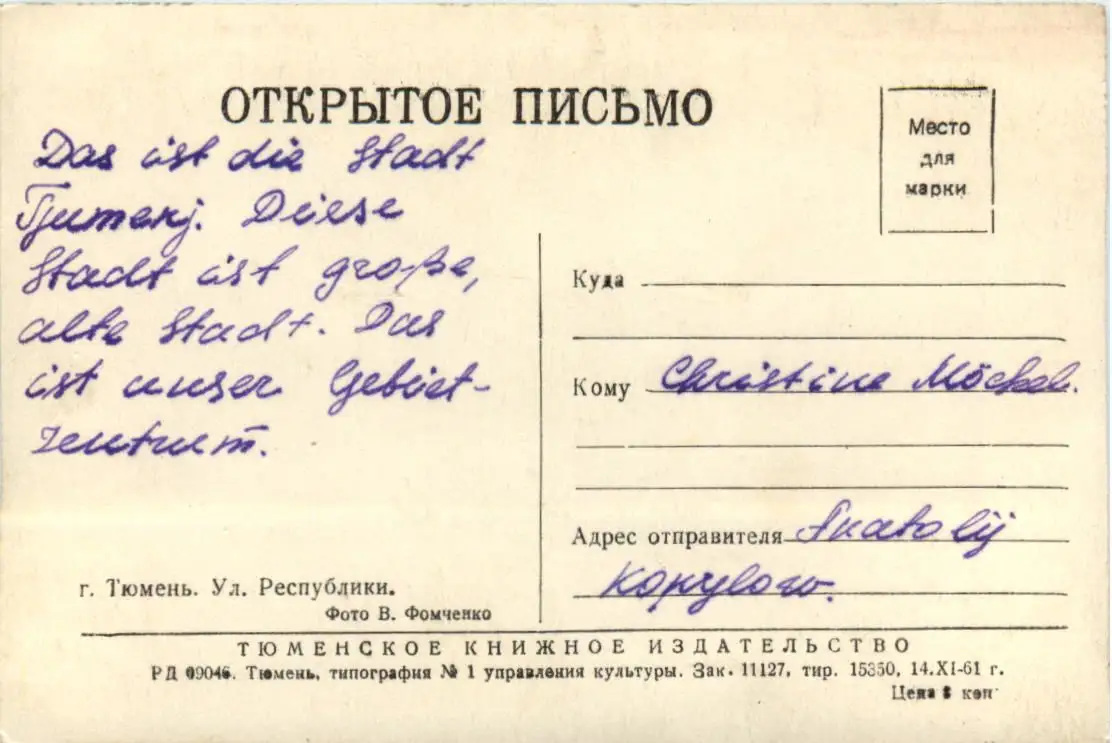 ОТКРЫТОЕ ПИСЬМО
Место
для
марки
Das ist die Stadt
Tjumenj. Diese
Stadt ist große,
alte Stadt. Das
ist unser Gebiet-
zentrum.
Куда
Кому Christine Möckel.
Адрес отправителя Anatolij
Kopylow.
г. Тюмень. Ул. Республики.
Фото В. Фомченко
ТЮМЕНСКОЕ КНИЖНОЕ ИЗДАТЕЛЬСТВО
РД 09046. Тюмень, типография № 1 управления культуры. Зак. 11127, тир. 15350, 14.XI-61 г.
Цена коп